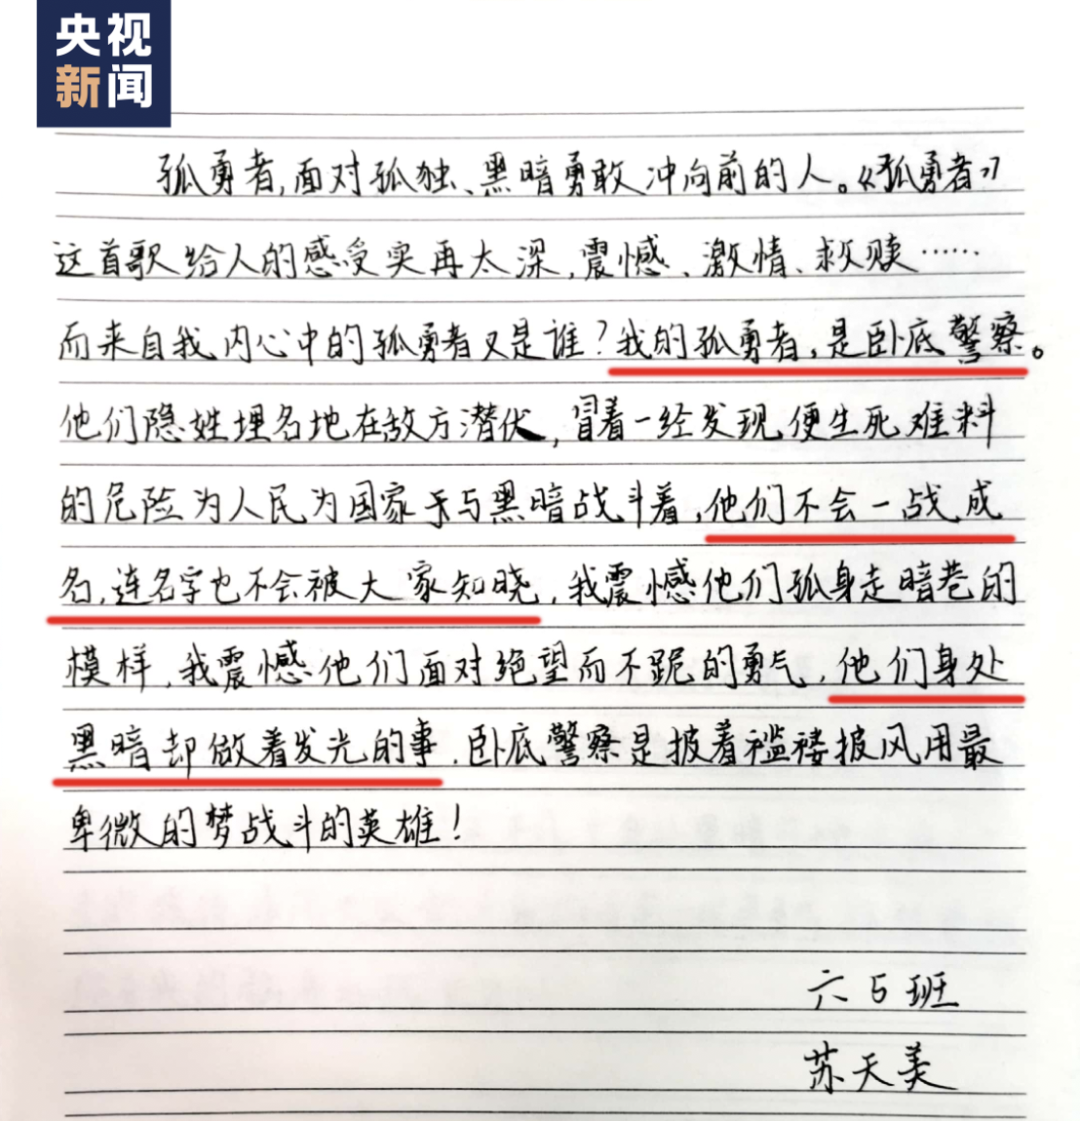 央视
新闻
孤勇者,面对孤独、黑暗勇敢冲向前的人。《孤勇者》
这首歌给人的感受实再太深,震憾、激情、救赎……
而来自我内心中的孤勇者又是谁?我的孤勇者,是卧底警察。
他们隐姓埋名地在敌方潜伏,冒着一经发现便生死难料
的危险为人民为国家于与黑暗战斗着,他们不会一战成
名,连名字也不会被大家知晓,我震憾他们孤身走暗巷的
模样,我震憾他们面对绝望而不跪的勇气,他们身处
黑暗却做着发光的事.卧底警察是披着褴褛披风用最
卑微的梦战斗的英雄!
六5班
苏天美